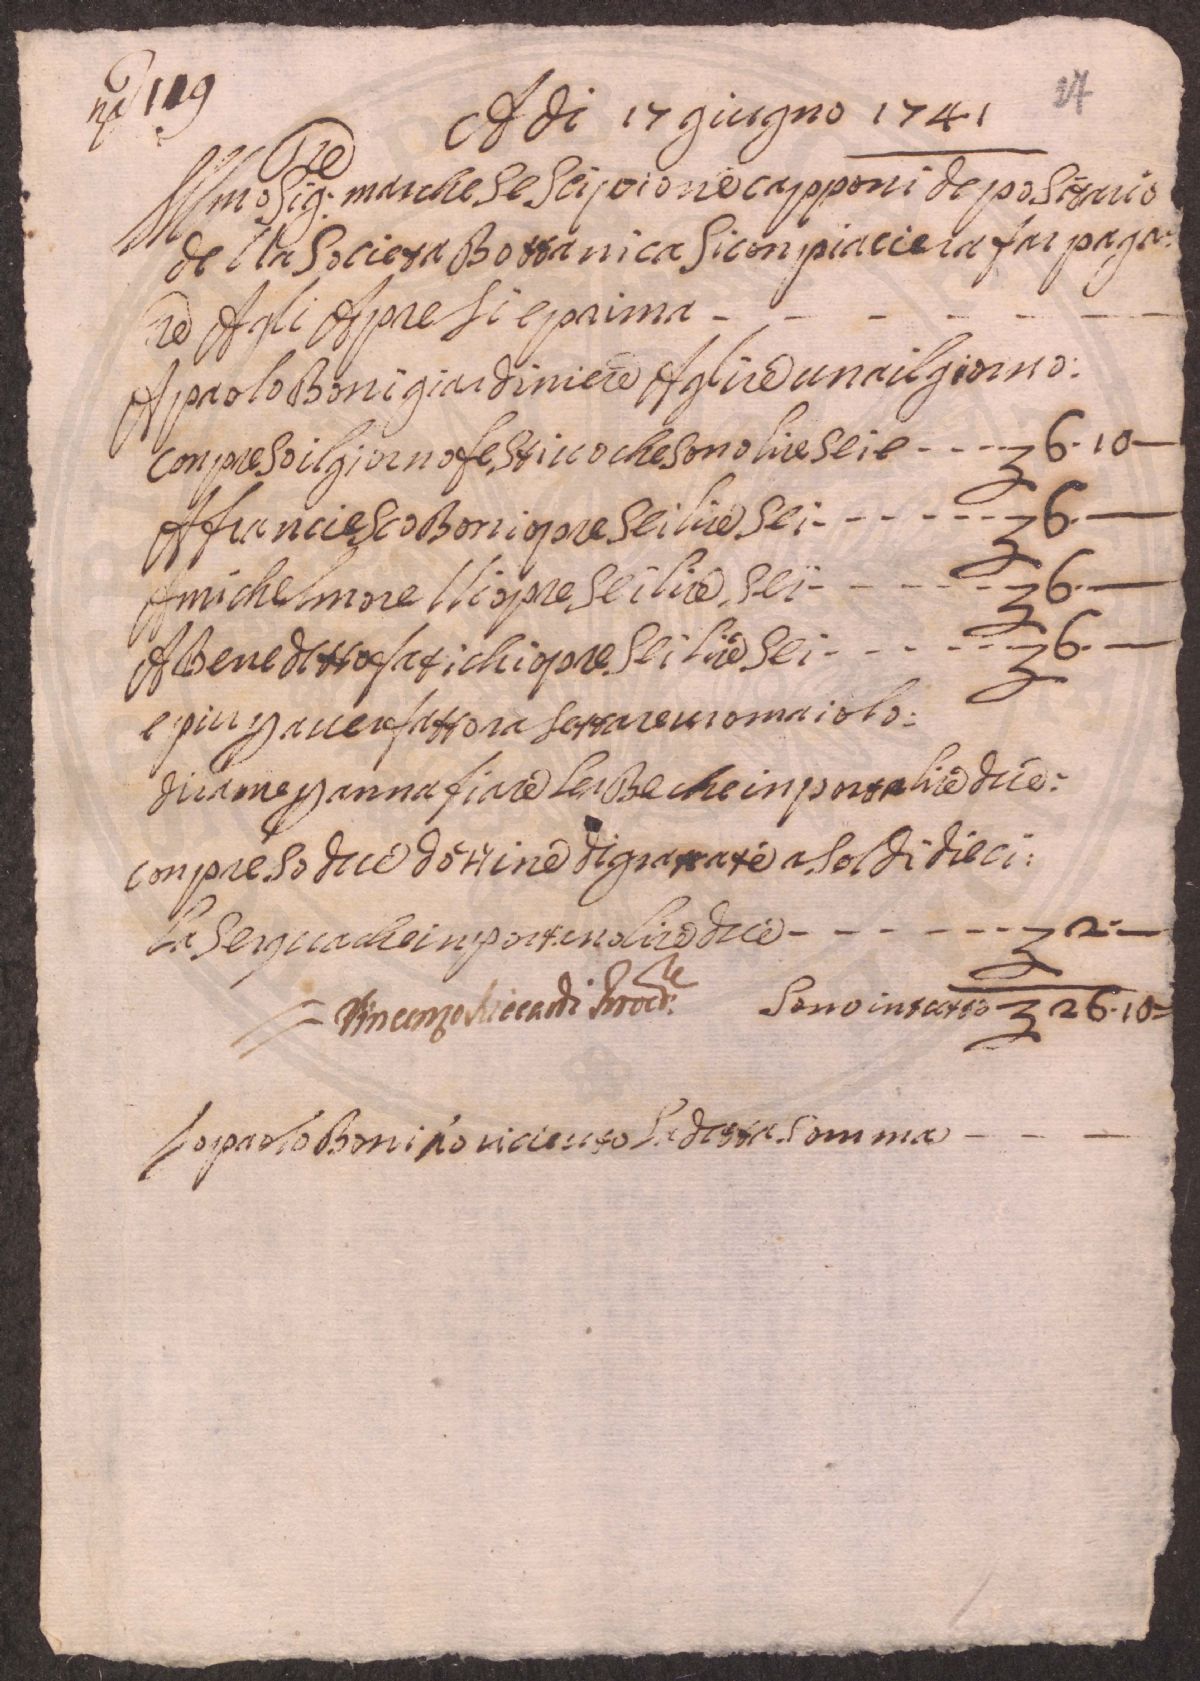 no 119
A di 17 giugno 1741
17
Illmo Sigre marchese Scipione capponi depositario
della Societa Bottanica Siconpiaciera far paga-
re Agli Apresi e prima
A paolo Boni giardiniere A lire una il giorno:
conpreso il giorno festiuo che sono lire sei e 6.10
A franciesco Boni opre sei lire sei 6.
A michel morelli opre sei lire sei 6.
A Beneditto fatichi opre sei lire sei 6.
e piu p auer fatto ra settare un romaiolo:
di rame p annafiare le erBe che inporta lire due:
conpreso due dozzine di granate a soldi dieci:
la serqua che inportano lire due 2.
Vincenzo Riccardi Prore: Sono in tutto 26.10
Io paolo Boni ho riceuto la detta somma